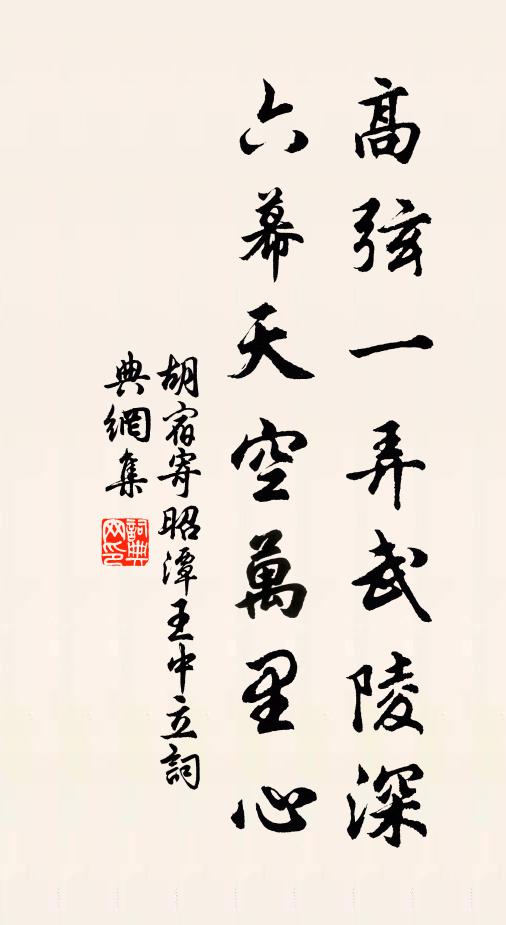 高弦一弄武陵深
六幕天空萬里心
胡宿寄昭潭王中立詞
典網集
詞典網印